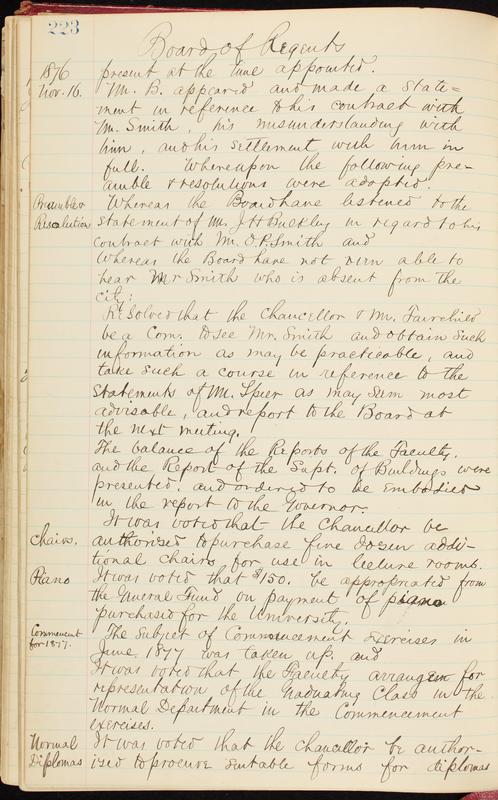 223
Board of Regents
1876 present at the time appointed.
Nov. 16. Mr. B. appeared and made a state=
ment in reference to his contract with
Mr. Smith, his misunderstanding with
him, and his settlement with him in
full. Whereupon the following pre-
amble & resolutions were adopted.
Preamble & Whereas the Board have listened to the
Resolution statement of Mr. J H Bulkley in regard to his
contract with Mr. O. P. Smith and
Whereas the Board have not been able to
hear Mr Smith who is absent from the
city;
Resolved that the Chancellor & Mr. Fairchild
be a Com. to see Mr. Smith and obtain such
information as may be practicable, and
take such a course in reference to the
statements of Mr. Speer as may seem most
advisable, and report to the Board at
the next meeting.
The balance of the Reports of the Faculty,
and the Report of the Supt. of Buildings were
presented, and ordered to be embodied
in the report to the Governor.
It was voted that the Chancellor be
Chairs. authorised to purchase five dozen addi-
tional chairs for use in lecture rooms.
Piano It was voted that $150. be appropriated from
the General Fund on payment of piano
purchased for the University.
Commencment The subject of Commencement Exercises in
for 1877. June 1877 was taken up. and
It was voted that the Faculty arrange for
representation of the Graduating Class in the
Normal Department in the Commencement
exercises.
Normal It was voted that the chancellor be author-
Diplomas ised to procure suitable forms for diplomas